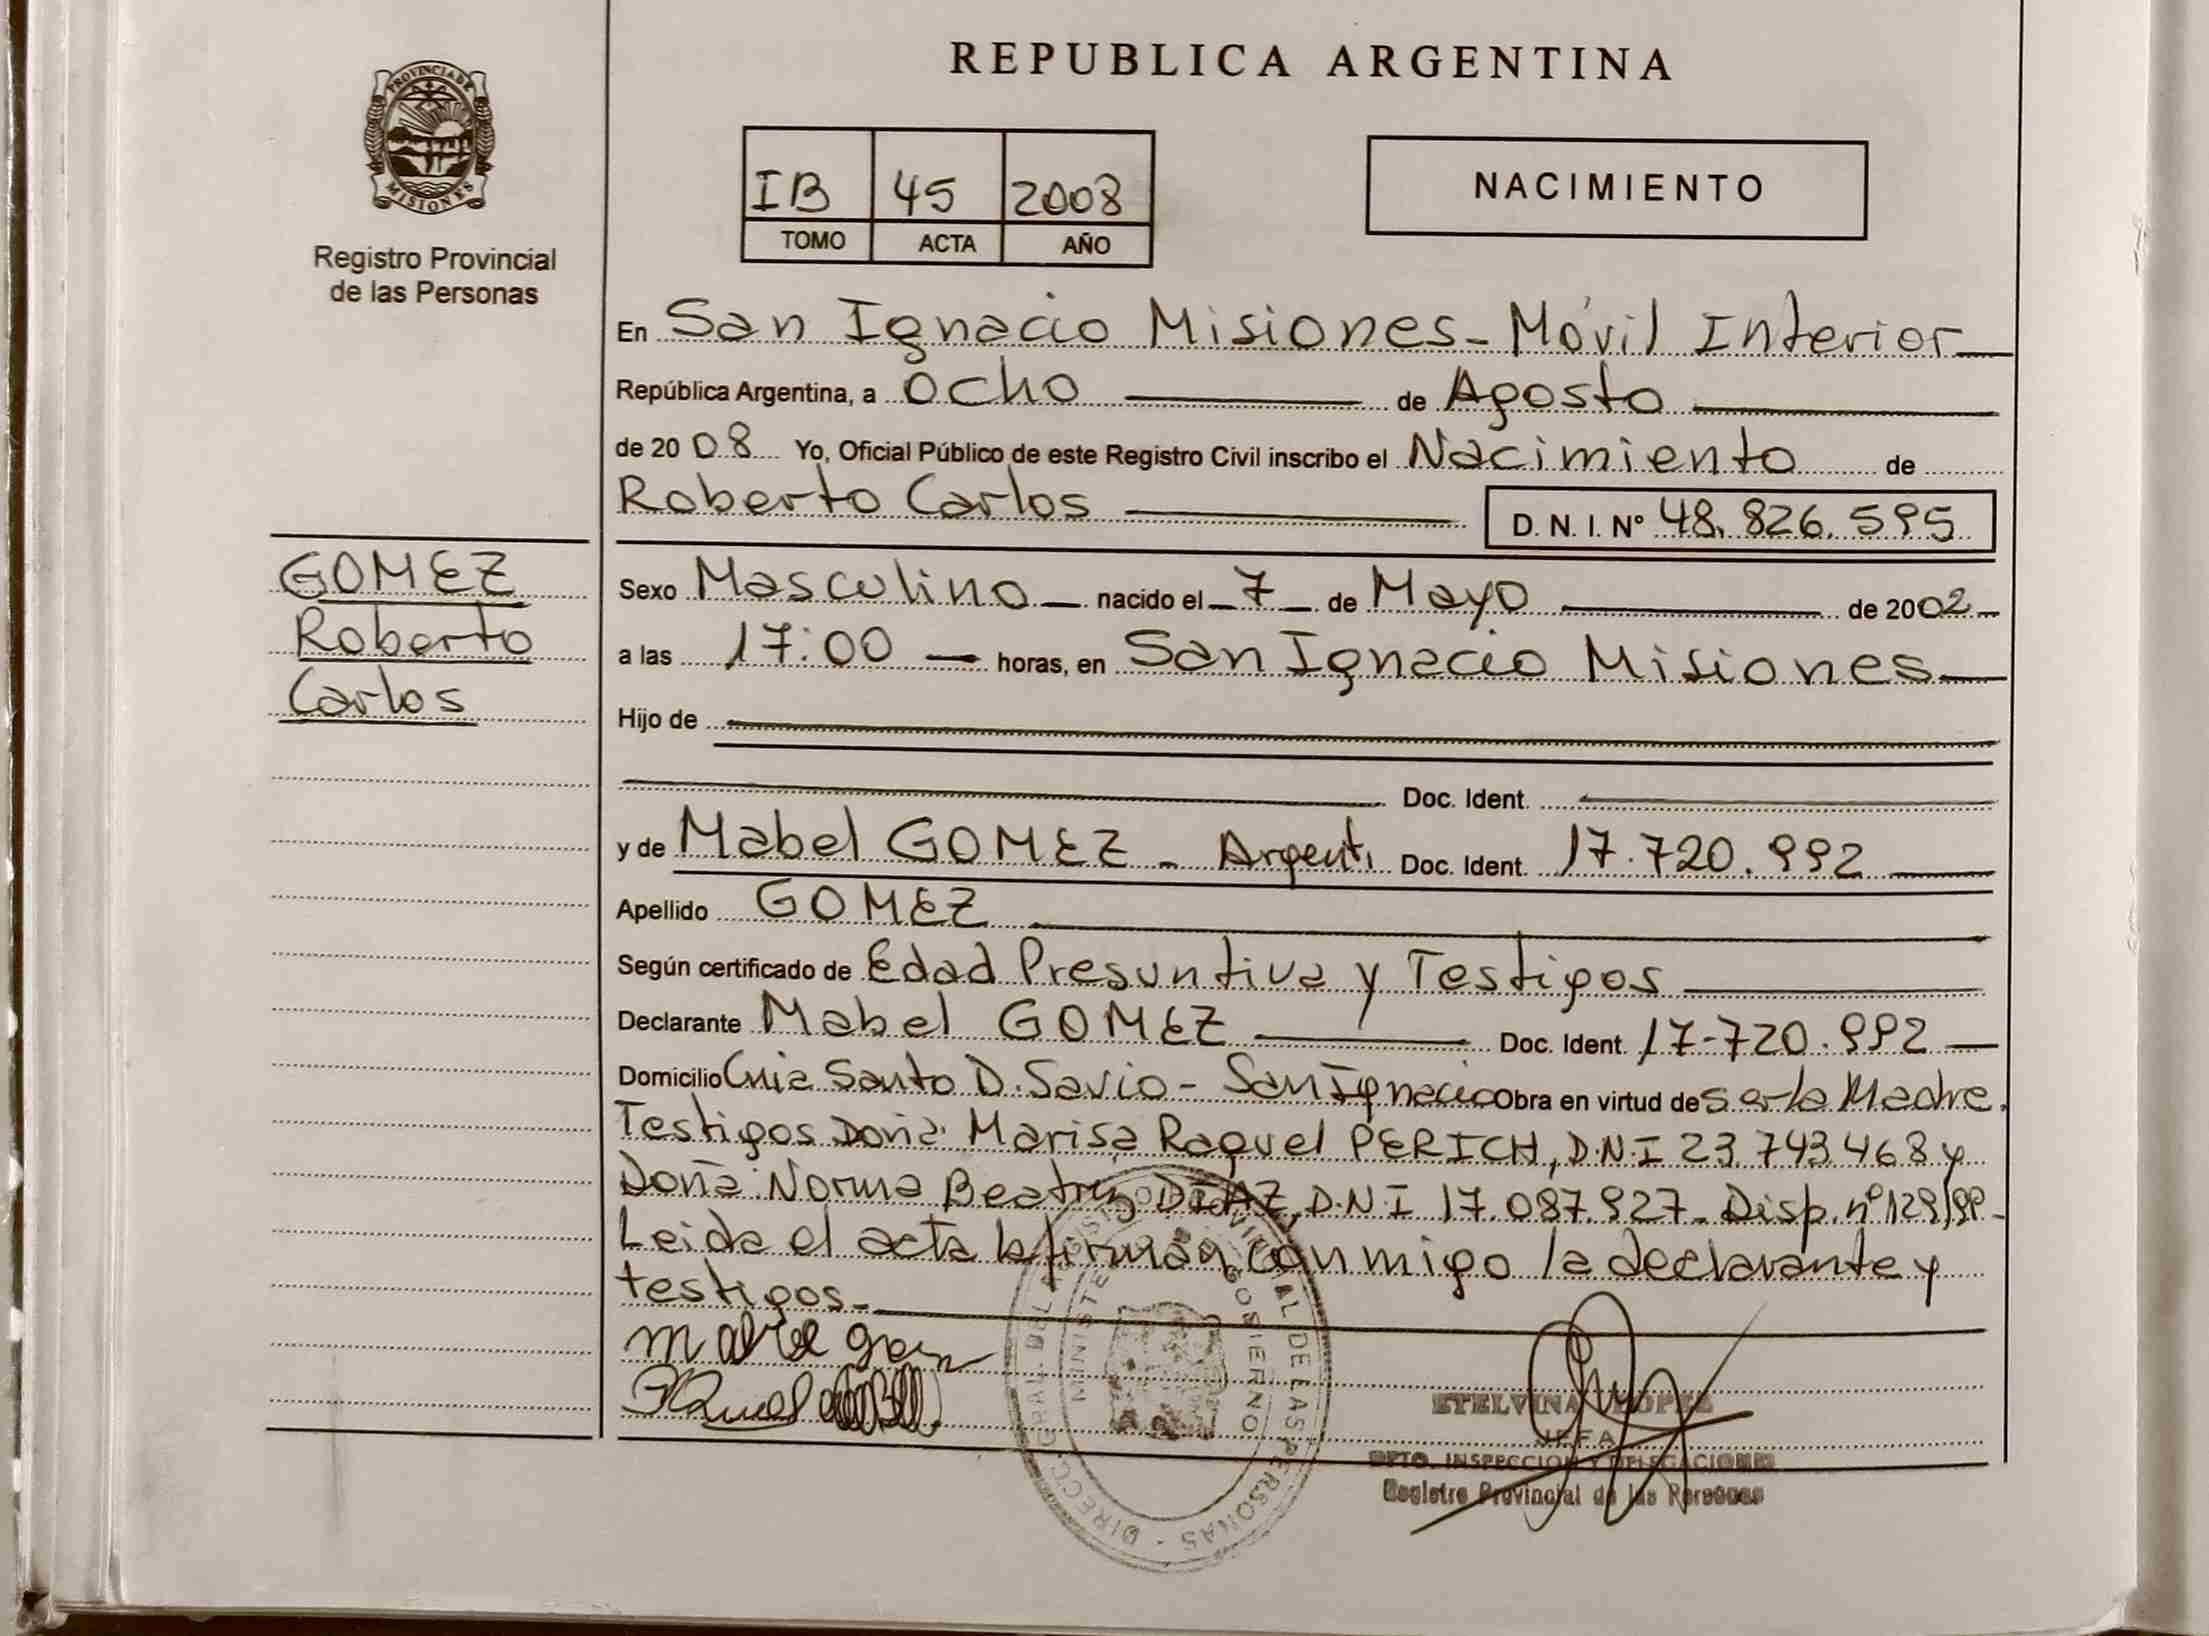 REPUBLICA ARGENTINA
PROVINCIA DE
MISIONES
Registro Provincial
de las Personas
IB 45 2008
TOMO ACTA AÑO
NACIMIENTO
En San Ignacio Misiones - Móvil Interior
República Argentina, a ocho de Agosto
de 2008 Yo, Oficial Público de este Registro Civil inscribo el Nacimiento de
Roberto Carlos D. N. I. Nº 48.826.595
GOMEZ
Roberto
Carlos
Sexo Masculino nacido el 7 de Mayo de 2002
a las 17:00 horas, en San Ignacio Misiones
Hijo de
Doc. Ident.
y de Mabel GOMEZ - Argenti Doc. Ident. 17.720.992
Apellido GOMEZ
Según certificado de Edad Presuntiva y Testigos
Declarante Mabel GOMEZ Doc. Ident. 17-720.992
Domicilio Santo D. Savio - San Ignacio Obra en virtud de Ser la Madre.
Testigos Doña: Marisa Raquel PERICH, D.N.I 23.743.468 y
Doña: Norma Beatriz DIAZ, D.N.I 17.087.927 - Disp. nº 129/99 -
Leida el acta la firman conmigo la declarante y
testigos.-
ETELVINA LOPEZ
JEFA
DPTO. INSPECCION Y DELEGACIONES
Registro Provincial de las Personas